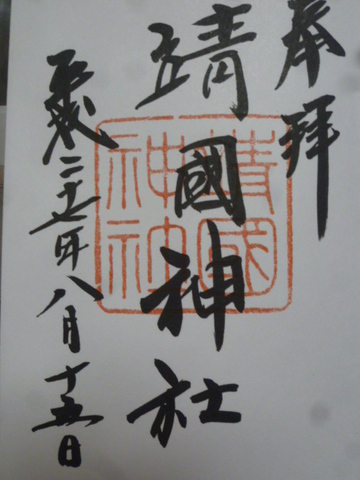 奉拝
靖國神社
平成二十七年八月十五日
靖國
神社